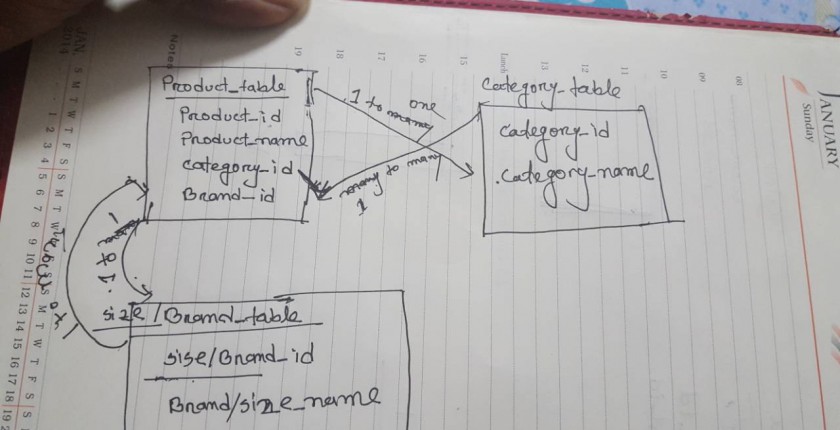 JANUARY
Sunday
08
09
10
11
12
13
Lunch
15
16
17
18
19
Notes
JAN.
2014
S M T W T F S S M T W S M T W T F S S
1 2 3 4 5 6 7 8 9 10 11 12 13 14 15 16 17 18 19
Product_table
Product_id
Product_name
category_id
Brand_id
one
to 1.
Category_table
category_id
.category_name
1
many
1 to
1
size/Brand_table
sise/Brand_id
Brand/size_name